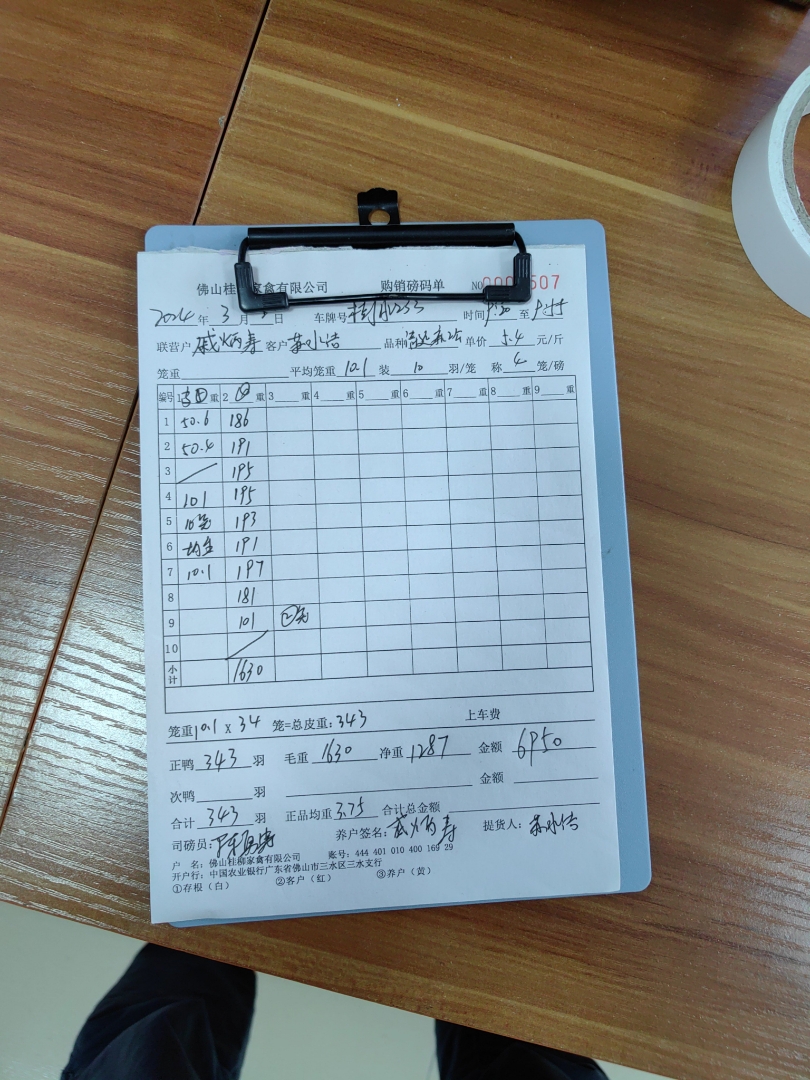 佛山桂柳家禽有限公司 购销磅码单 NO 507
2024 年 3 月 日 车牌号 时间 9:50 至 9:55
联营户 戚炳寿 客户 苏永洁 品种 单价 5.4 元/斤
笼重 平均笼重 10.1 装 10 羽/笼 称 4 笼/磅
编号 1 重 2 重 3 重 4 重 5 重 6 重 7 重 8 重 9 重
1 50.6 186
2 50.4 191
3 195
4 101 195
5 10笼 193
6 均重 191
7 10.1 197
8 181
9 101 ②笼
10
小计 1630
笼重 10.1 x 34 笼=总皮重: 343 上车费
正鸭 343 羽 毛重 1630 净重 1287 金额 6950
次鸭 羽 金额
合计 343 羽 正品均重 3.75 合计总金额
司磅员: 养户签名: 戚炳寿 提货人: 苏永洁
户 名: 佛山桂柳家禽有限公司 账号: 444 401 010 400 169 29
开户行: 中国农业银行广东省佛山市三水区三水支行
①存根(白) ②客户(红) ③养户(黄)